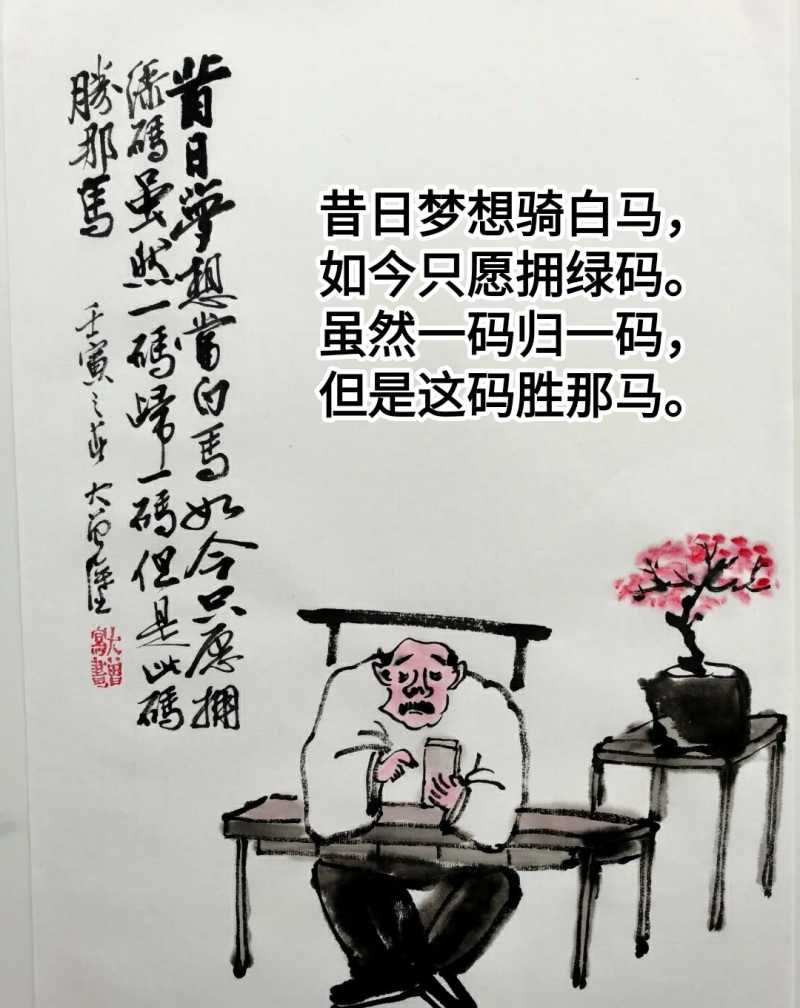 昔日夢想當白馬如今只愿拥
绿碼虽然一碼歸一碼但是此碼
勝那馬
壬寅之春大曾
昔日梦想骑白马,
如今只愿拥绿码。
虽然一码归一码,
但是这码胜那马。